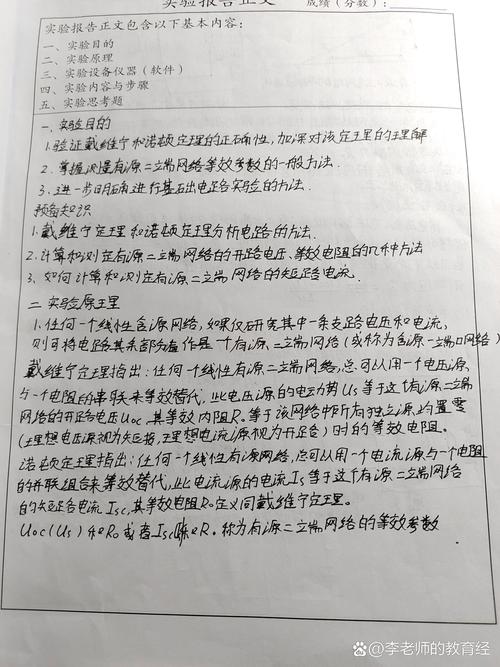 实验报告正文
成绩（分数）：
实验报告正文包含以下基本内容：
一、实验目的
二、实验原理
三、实验设备仪器（软件）
四、实验内容与步骤
五、实验思考题
一、实验目的
1.验证戴维宁和诺顿定理的正确性,加深对该定理的理解
2.掌握测量有源二端网络等效参数的一般方法.
3.进一步明确进行基础电路实验的方法.
预备知识
1.戴维宁定理和诺顿定理分析电路的方法.
2.计算和测定有源二端网络的开路电压、等效电阻的几种方法
3、如何计算和测定有源二端网络的短路电流.
二 实验原理
1.任何一个线性含源网络,如果仅研究其中一条支路电压和电流,
则可将电路其余部分看作是一个有源二端网络(或称为含源一端口网络)
戴维宁定理指出:任何一个线性有源二端网络,总可以用一个电压源
与一个电阻的串联来等效替代,此电压源的电动势Us等于这个有源二端
网络的开路电压Uoc,其等效内阻R。等于该网络中所有独立源均置零
(理想电压源视为短接,理想电流源视为开路)时的等效电阻。
诺顿定理指出:任何一个线性有源网络,总可以用一个电流源与一个电阻
的并联组合来等效替代,此电流源的电流Is等于这个有源二端网络
的短路电流Isc,其等效电阻R。定义同戴维宁定理。
Uoc(Us)和R。或者Isc 和R。称为有源二端网络的等效参数
百家号/李老师的教育经